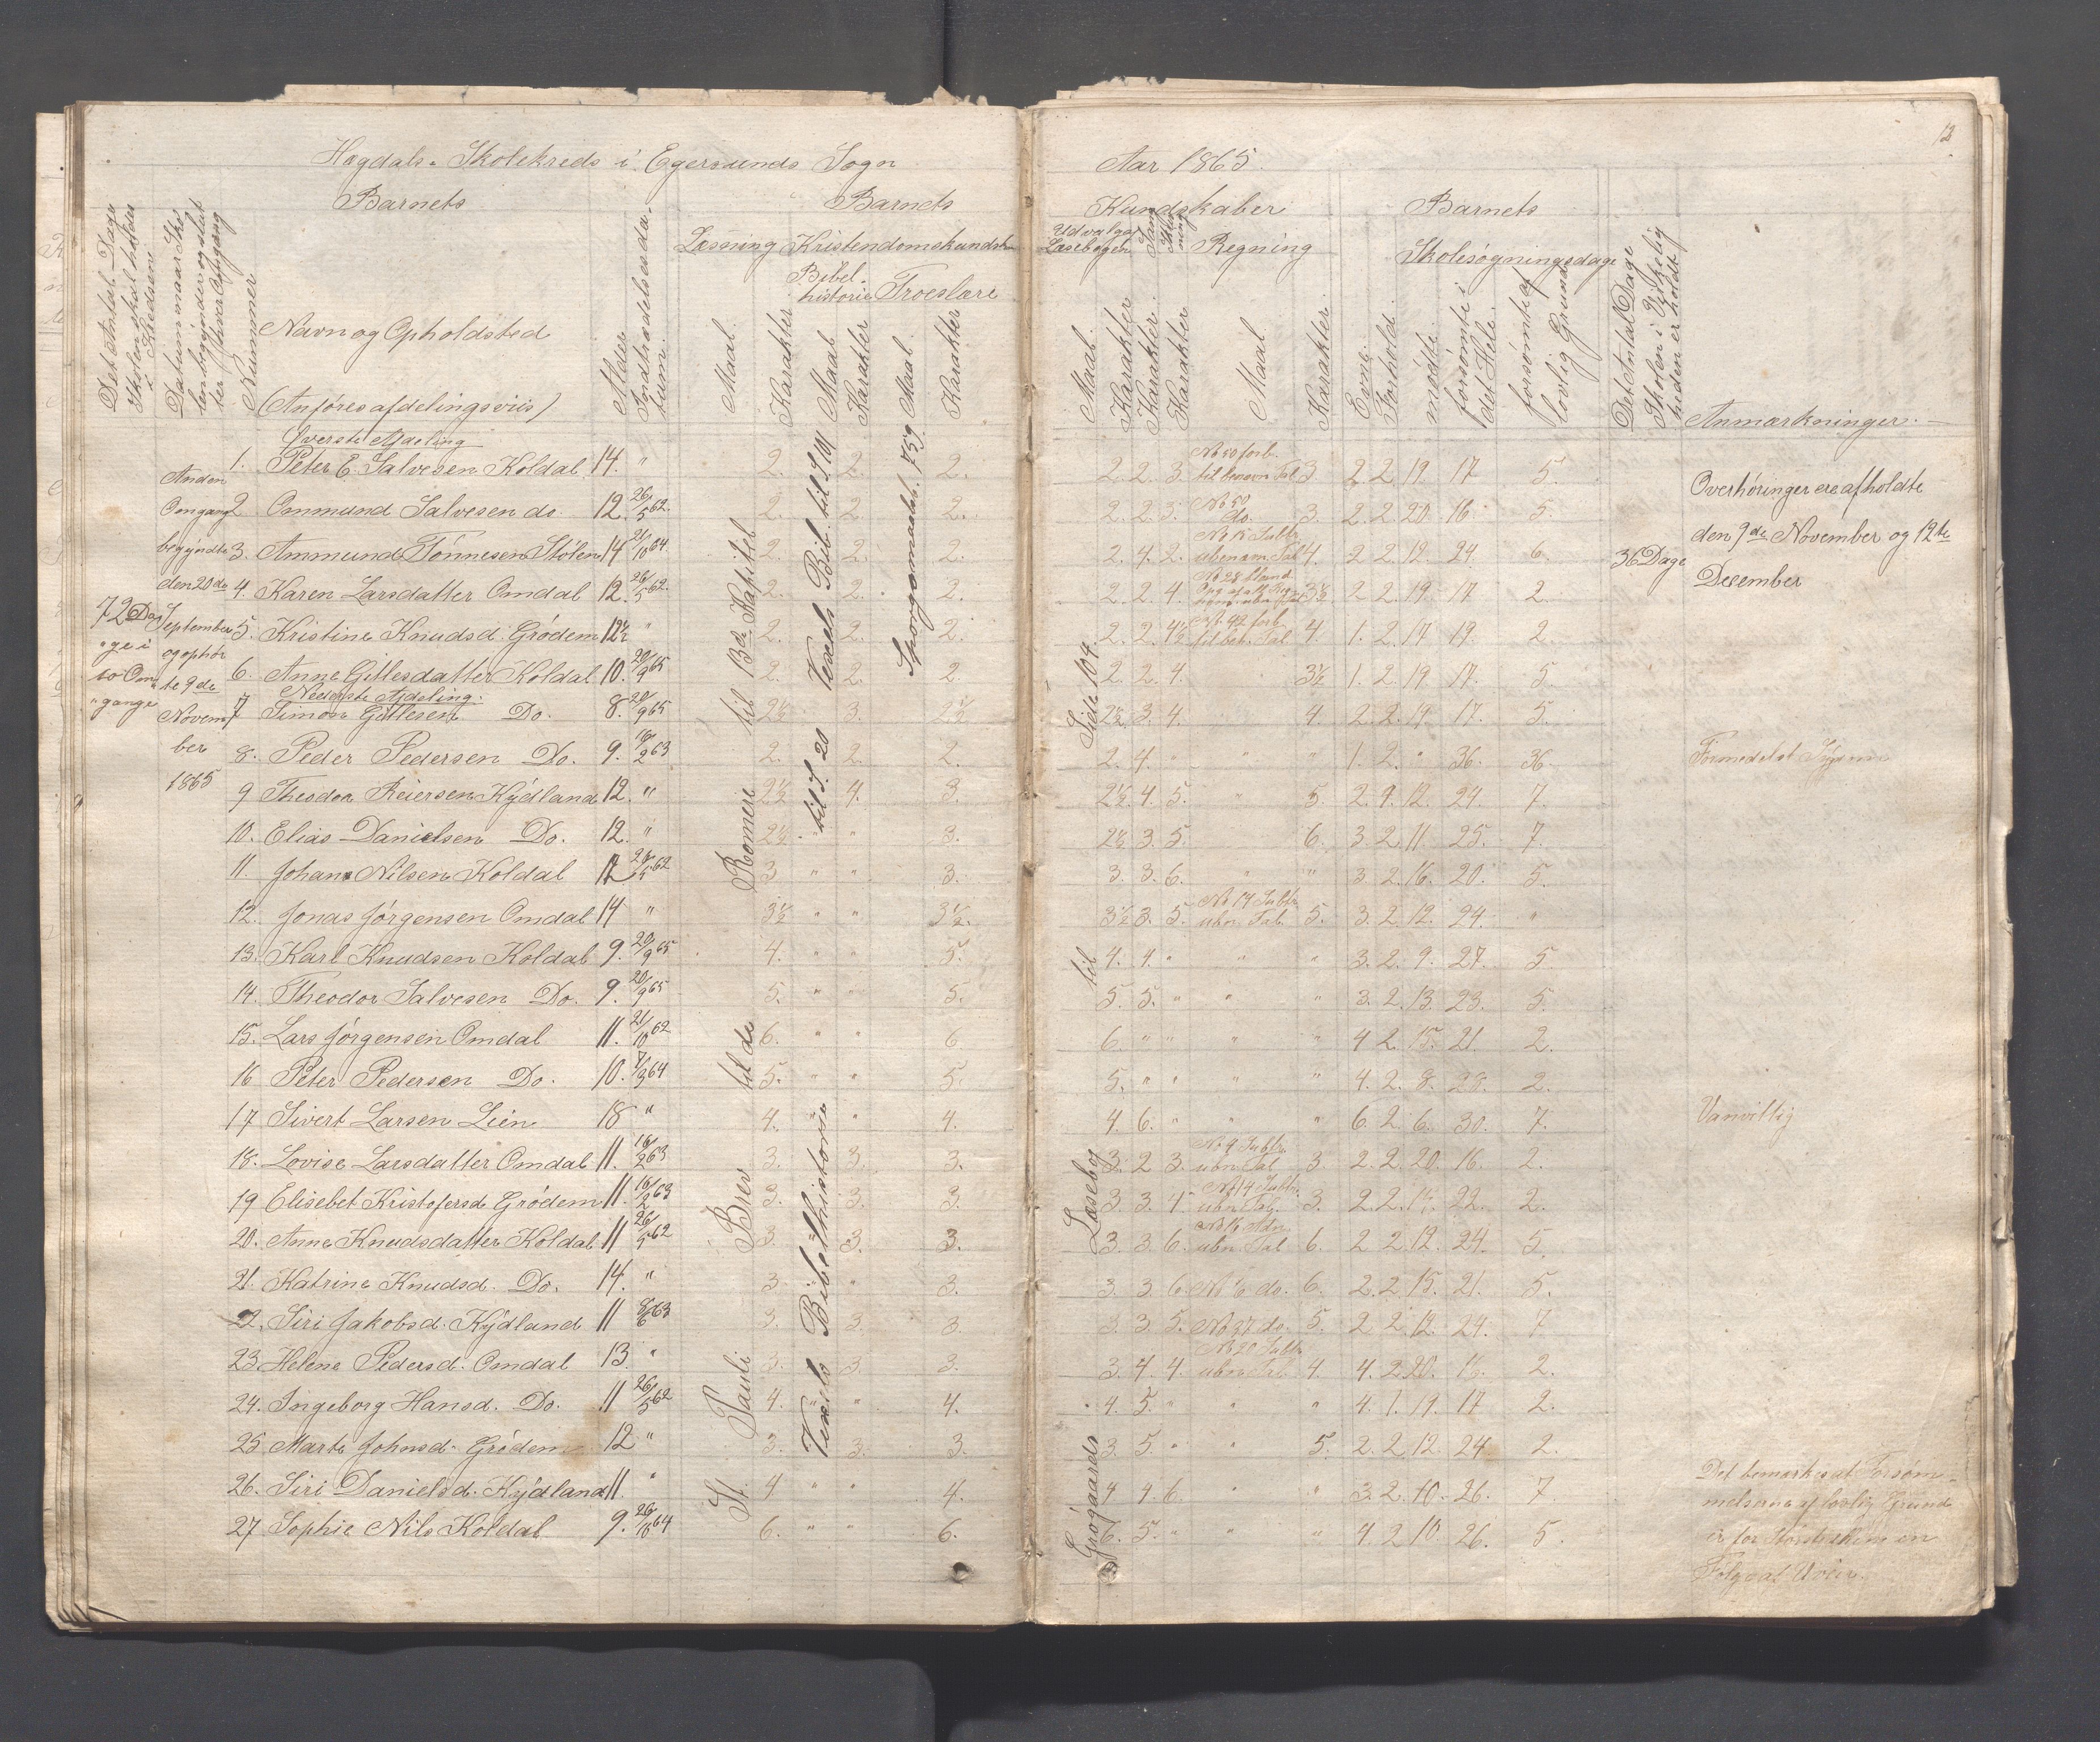 Høgdals Skolekreds i Egersunds Sogn
Aar 1865.
12
Barnets
Barnets
Kundskaber
Barnets
Læsning Kristendomskundskab
Udvalg af Læsebogen
Regning
Skolesøgningsdage
Bibelhistorie
Troeslære
Det Antal Dage Skolen skal holdes i Kredsen
Datum naar Skolen begynder og slutter hver Omgang
Nummer
Navn og Opholdsted
(Anføres afdelingsviis)
Alder
Indtrædelsesdatum.
Maal.
Karakter
Maal.
Karakter
Maal.
Karakter
Maal.
Karakter
Karakter.
Karakter
Maal
Karakter.
Evne.
Forhold.
mødte.
forsømte i det Hele.
forsømte af lovlig Grund
Det Antal Dage Skolen i Virkeligheden er holdt
Anmærkninger.
72 Dage i to Omgange
Anden Omgang begyndte den 20de September og ophørte 9de November 1865
St. Pauli Brev til de Romere til 13de Kapitel
Vexels Bibelhistorie til S. 20 Vexels Bib. til S. 101
Spørgsmaal. 759
Grøgaards Læsebog til Side 104.
36 Dage
Øverste Afdeling
1. Peter E. Salvesen Koldal 14. " 2. 2. 2. 2. 2. 3. No 50 forb. 3. 2 2 19 17 5.
2 Ommund Salvesen do. 12. 26/5 62. 2. 2. 2. 2. 2. 3. No 50 do. 3. 2. 2. 20. 16. 5.
3. Ammund Tønnesen Stølen 14 21/10 64 2. 2. 2. 2. 4. 2. 4. 2 2 12. 24. 6.
4. Karen Larsdatter Omdal 12. 26/5 62. 2. 2. 2. 2. 2. 4. 3½ 2 2 19 17 2.
5. Kristine Knudsd. Grødem 12½ " 2. 2. 2. 2. 2. 4½ 4. 1. 2. 17 19. 2.
6. Anne Gitlesdatter Koldal 10. 20/9 65 2. 2. 2. 2. 2. 4. 3½ 1. 2. 19 17. 5.
Nederste Afdeling.
7 Simon Gitlesen Do. 8. 20/9 65 2½ 3. 2½. 2½ 3. 4. 4. 2. 2. 19. 17. 5.
8. Peder Pedersen Do. 9. 16/2 63 2. 2. 2. 2. 4. " " " 1. 2. " 36. 36.
9 Theodor Reiersen Kýdland 12. " 2½ 4. 3. 2½. 4. 5. " 5. 2. 2. 12. 24. 7.
10. Elias Danielsen Do. 12. " 2½ " " 3. 2½ 3. 5. 6. 3. 2. 11. 25. 7.
11. Johan Nilsen Koldal 12 26/5 62 3. " " 3. 3. 3. 6. " " 3. 2. 16. 20. 5.
12. Jonas Jørgensen Omdal 14 " 3½ " " 3½. 3½ 3. 5. No 14 Subtr. ubn. Tal 5. 3. 2. 12. 24. "
13. Karl Knudsen Koldal 9. 20/9 65 4. " " 5. 4. 4. " " " 3. 2. 9. 27. 5.
14. Theodor Salvesen Do. 9. 20/9 65 5. " " 5. 5. 5. " " " 3. 2. 13. 23. 5.
15. Lars Jørgensen Omdal 11. 21/10 62 6. " " 6 6. " " " " 4 2. 15. 21. 2.
16 Peter Pedersen Do. 10. 64 5. " " 5. 5. " " " " 4. 2. 8. 28. 2.
17 Sivert Larsen Lein 18 " 4. " " 4. 4. 6. " " " 6. 2. 6. 30. 7.
18. Lovise Larsdatter Omdal 11. 16/2 63 3. 3. 3. 3. 2 3. No 9 Subtr. ubn. Tal 3. 2. 2. 20. 16. 2.
19 Elisebet Kristofersd. Grødem 11. 16/2 63 3. 3. 3. 3. 3. 4. No 14 Subtr. ubn. Tal. 3. 2. 2. 22. 2.
20. Anne Knudsdatter Koldal 11 26/5 62 3. 3. 3. 3. 3. 6. No 16 Adn. ubn. Tal 6. 2 2. 12. 24. 5.
21. Katrine Knudsd. Do. 14. " 3. " 3. 3. 3. 6. No 6 do. 6. 2. 2. 15. 21. 5.
22. Siri Jakobsd. Kýdland 11 8/6 63 3. 3. 3. 3. 3. 5. No 37 do. 5. 2 2. 12. 24. 7
23. Helene Pedersd. Omdal 13. " 3. 3. 3. 3. 4. 4. No 20 Subt. ubn. Tal. 4. 4. 2. 20. 16. 2.
24. Ingeborg Hansd. Do. 11 26/5 62 4. " 4. 4. 5. " " " 4. 1. 19. 17 2.
25 Marte Johnsd. Grødem 12 " 3. 3. 3. 3. 5. " " 5. 2. 2. 12. 24 2.
26. Siri Danielsd. Kýdland 11. " 4 " " 4. 4 4. 6. " " 3. 2. 10. 26. 7.
27 Sophie Nils Koldal 9. 26/10 64 6. " " 6. 6. 5. " " " 4. 2 10. 26. 5.
Overhøringer ere afholdte
den 9de November og 12te
December
Formedelst Sygdom
Vanvittig
Det bemærkes at Forsøm-
melserne af lovlig Grund
er for Størstedelen en
Følge af Uveir.